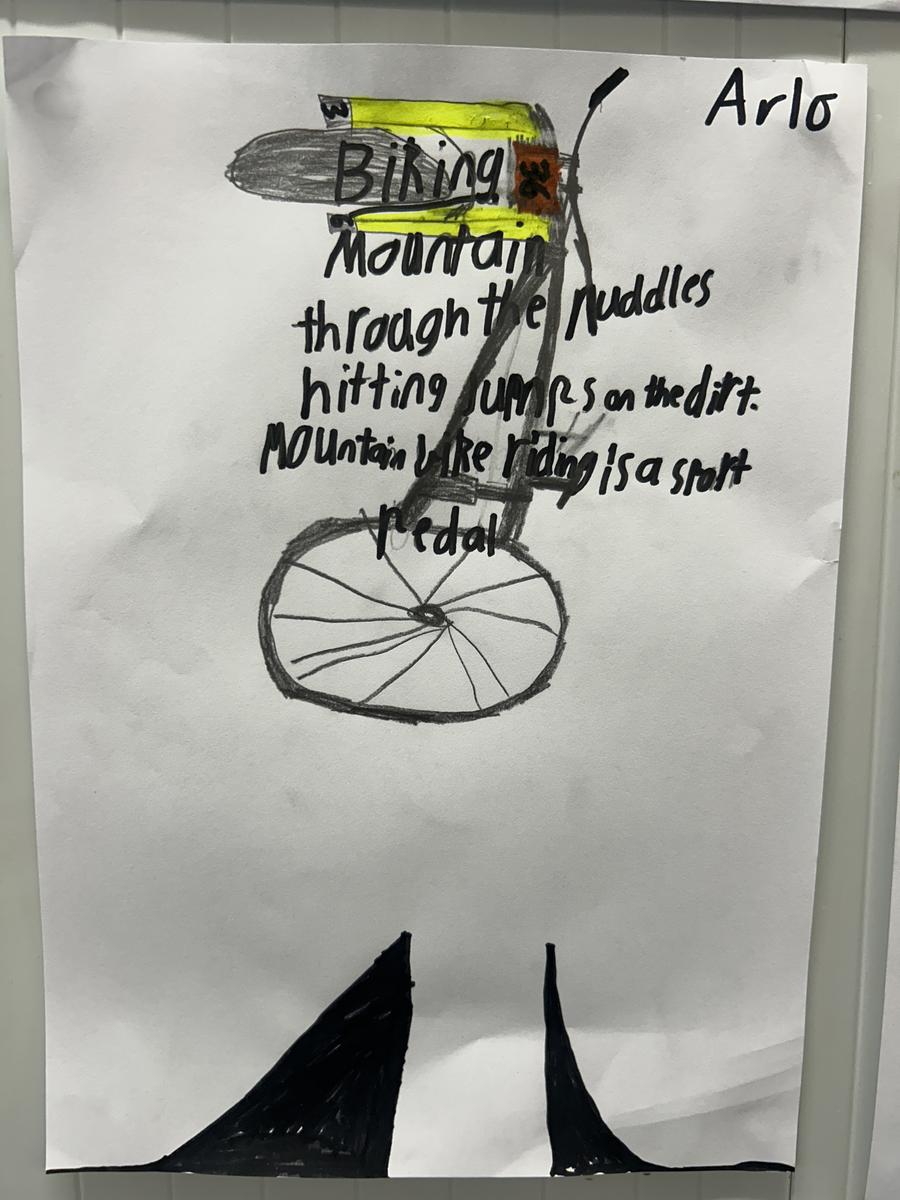 Arlo
3
Biking
36
Mountain
through the puddles
hitting jumps on the dirt.
Mountain bike riding is a sport
pedal